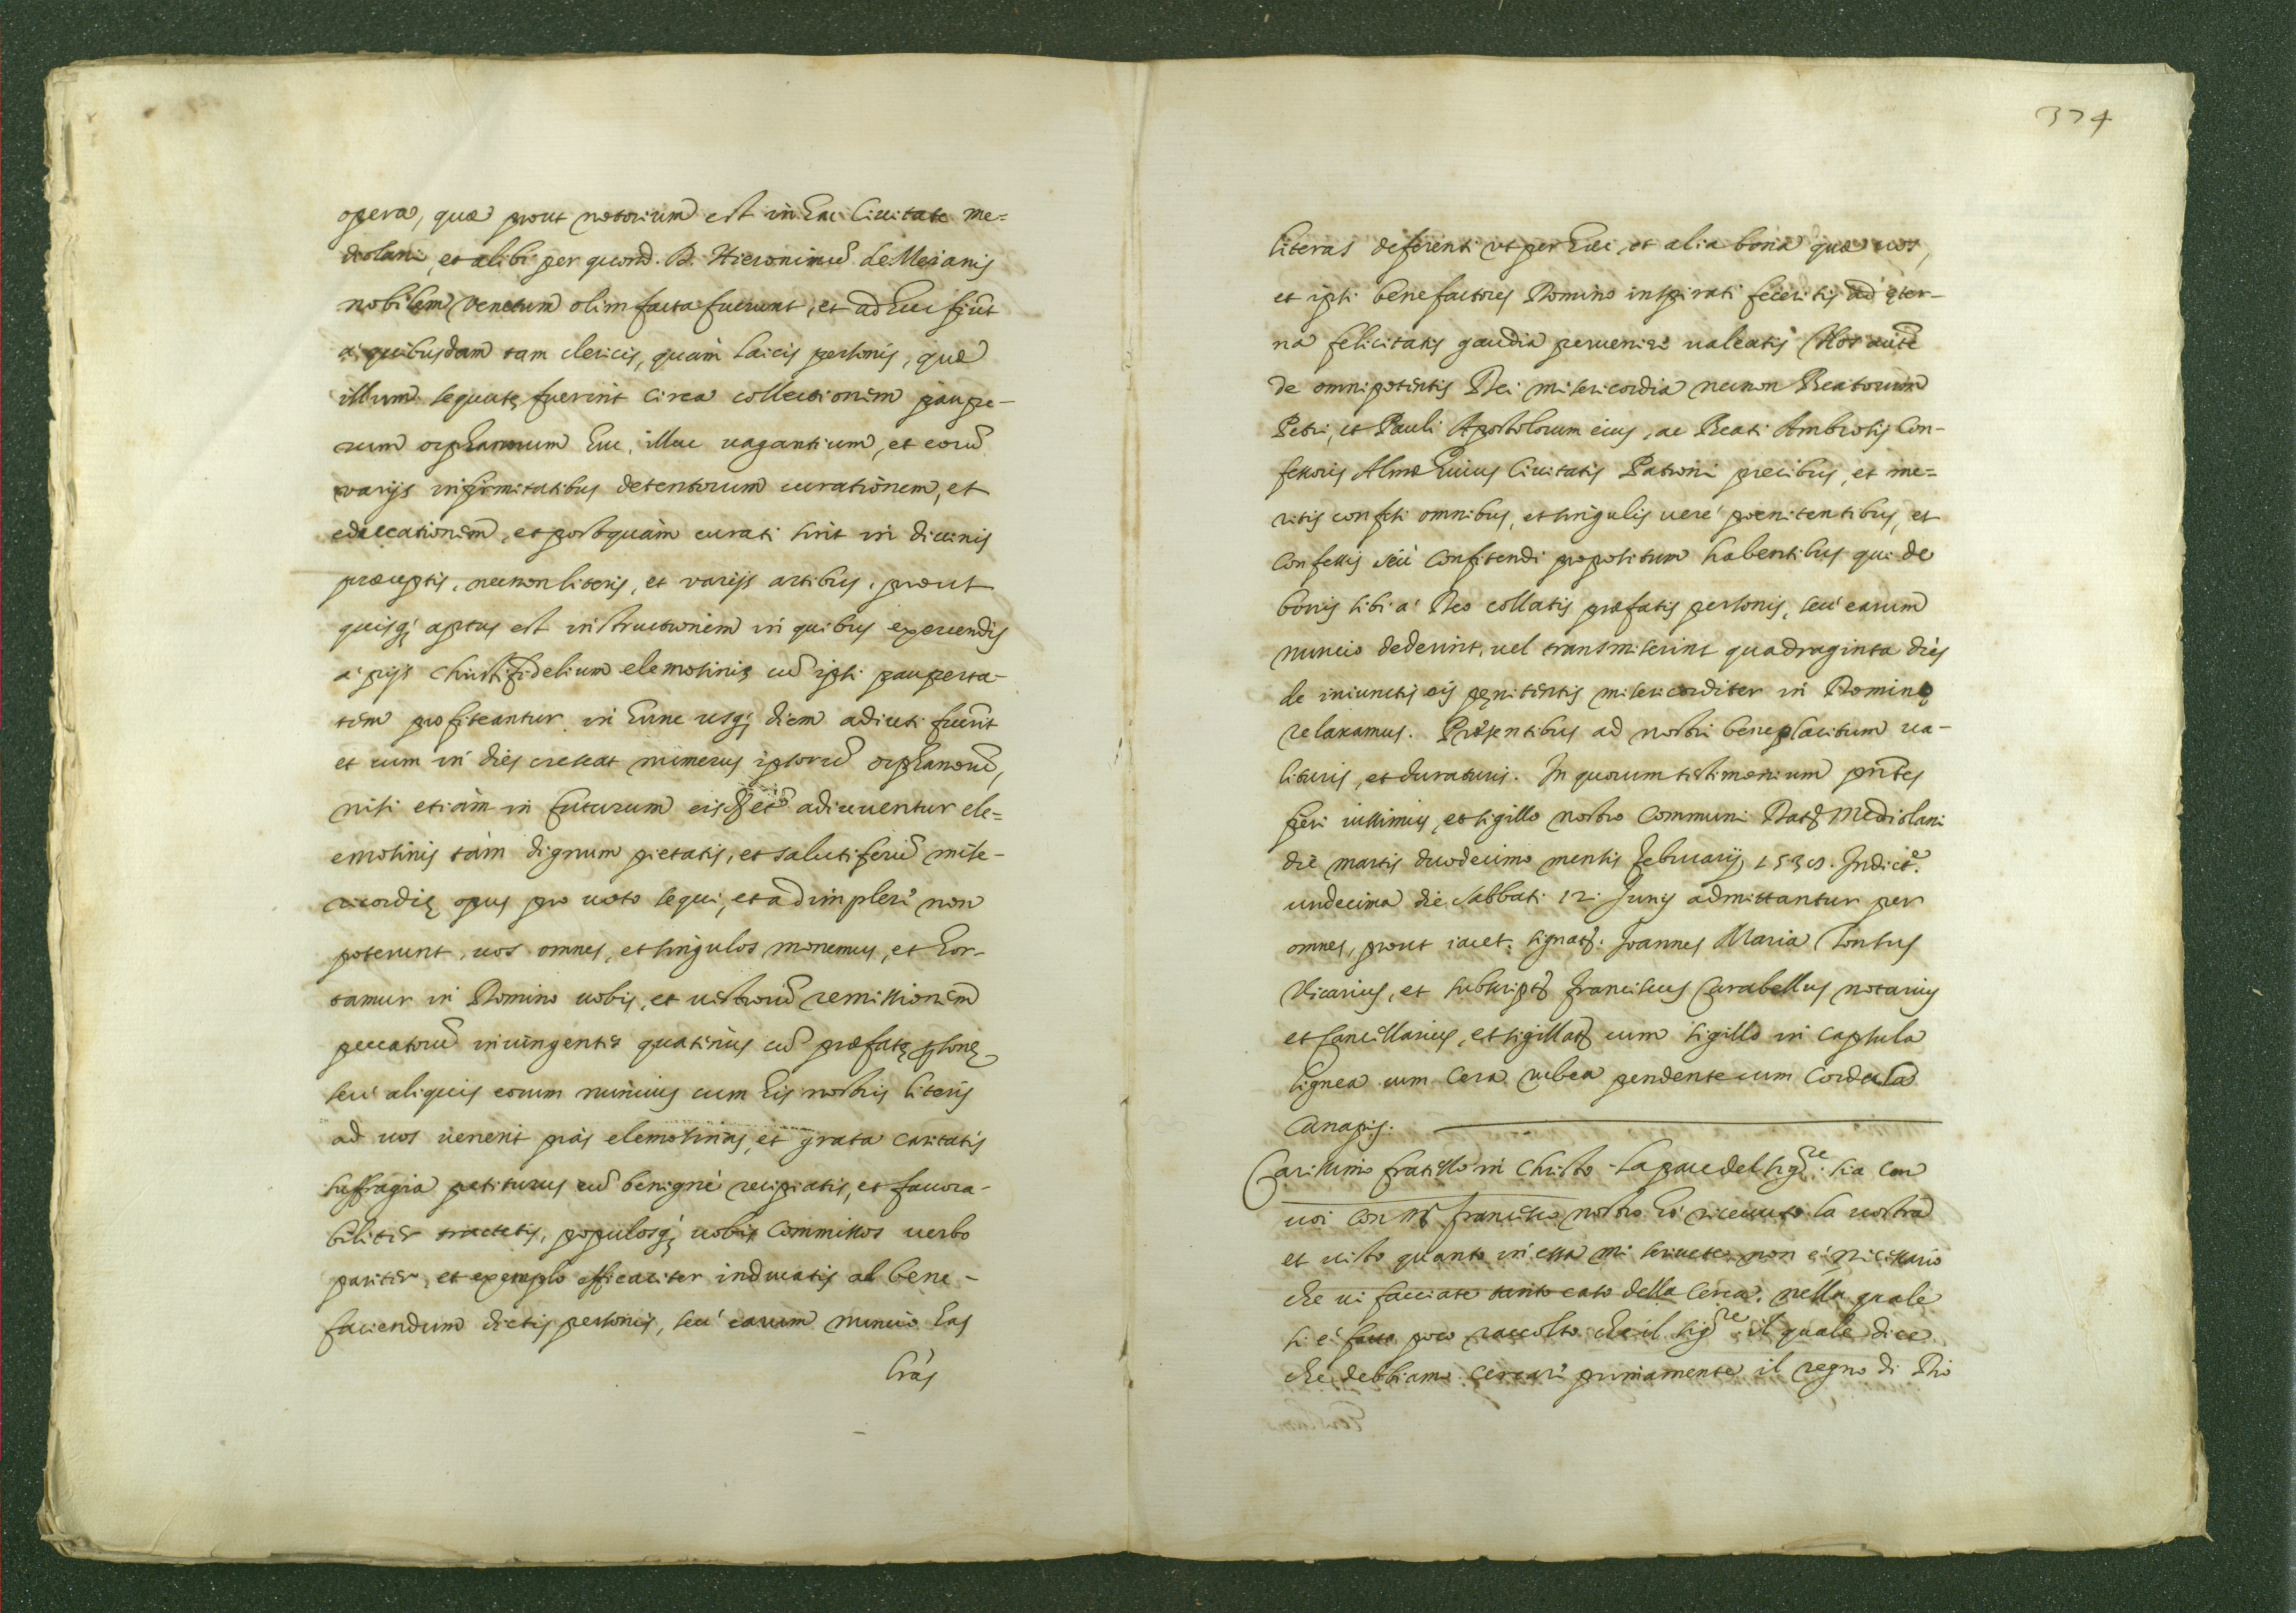 opera, quæ prout notorium est in hac Ciuitate me=
diolani, et alibi per quond. D. Hieronimū de Meianis
nobilem Venetum olim facta fuerunt, et ad huc fiūt
a' quibusdam tam clericis, quàm laicis personis, quæ
illum sequutę fuerint circa collectionem paupe-
rum orphanorum huc, illuc uagantium, et eorū
varijs infirmitatibus detentorum curationem, et
educationem, et postquàm curati sint in diuinis
præceptis, necnon literis, et varijs artibus, prout
quisq; aptus est instructionem in quibus exercendis
a' pijs Christifidelium elemosinis cū ipsi pauperta-
tem profiteantur in hunc usq; diem adiuti fuerīt
et cum in dies crescat numerus ipsorū orphanorū,
nisi etiàm in futurum eisdē adiuuentur ele=
emosinis tàm dignum pietatis, et salutiferū mise-
ricordię opus pro uoto sequi, et adimpleri non
poterunt, uos omnes, et singulos monemus, et hor-
tamur in Domino uobis, et uestrorū remissionem
peccatorū iniungentes quatinus cū præfatę psonę
seu' aliquis eorum nuncius cum his nostris literis
ad uos uenerit pias elemosinas, et grata caritatis
suffragia petiturus eū benignè recipiatis, et fauora-
biliter tractetis, populosq; uobis commissos uerbo
pariter, et exemplo efficaciter inducatis ad bene-
faciendum dictis personis, seu' earum nuncio has
lrās
374
literas deferenti ut per huc, et alia bona quæ uos,
et ipsi benefactores Domino inspirati feceritis ad ęter-
na felicitatis gaudia peruenire ualeatis Nos autē
de omnipotentis Dei misericordia necnon Beatorum
Petri, et Pauli Apostolorum eius, ac Beati Ambrosij Con-
fessoris Almæ huius Ciuitatis Patroni precibus, et me=
ritis confisi omnibus, et singulis uerè poenitentibus, et
confessis seu' confitendi propositum habentibus qui de
bonis sibi a' Deo collatis præfatis personis, seu' earum
nuncio dederint, uel transmiserint quadraginta dies
de iniunctis eis pęnitentis misericorditer in Domino
relaxamus. Præsentibus ad nostri beneplacitum ua-
lituris, et duraturis. In quorum testimonium prītes
fieri iussimus, et sigillo nostro communi Dat. Mediolani
die martis duodecimo mensis februarij 1538. Indictᵉ.
undecima die sabbati 12 Junij admittantur per
omnes, prout iacet. signat. Joannes Maria Tonsus
Vicarius, et subscript. franciscus Carabellus notarius
et Cancellarius, et sigillat. cum sigillo in capsula
lignea cum cera rubea pendente cum cordula
Canapis.
Carissimo fratello in Christo. La pace del Sigʳᵉ. sia con
uoi con Mr francesco nostro hò riceuuto la uostra
et uisto quanto in essa mi scriuete. non è necessario
che ui facciate tanto caso della Cerca. nella quale
si è fatto poco raccolto che il sigʳᵉ il quale dice
che debbiamo cercare primamente il regno di Dio